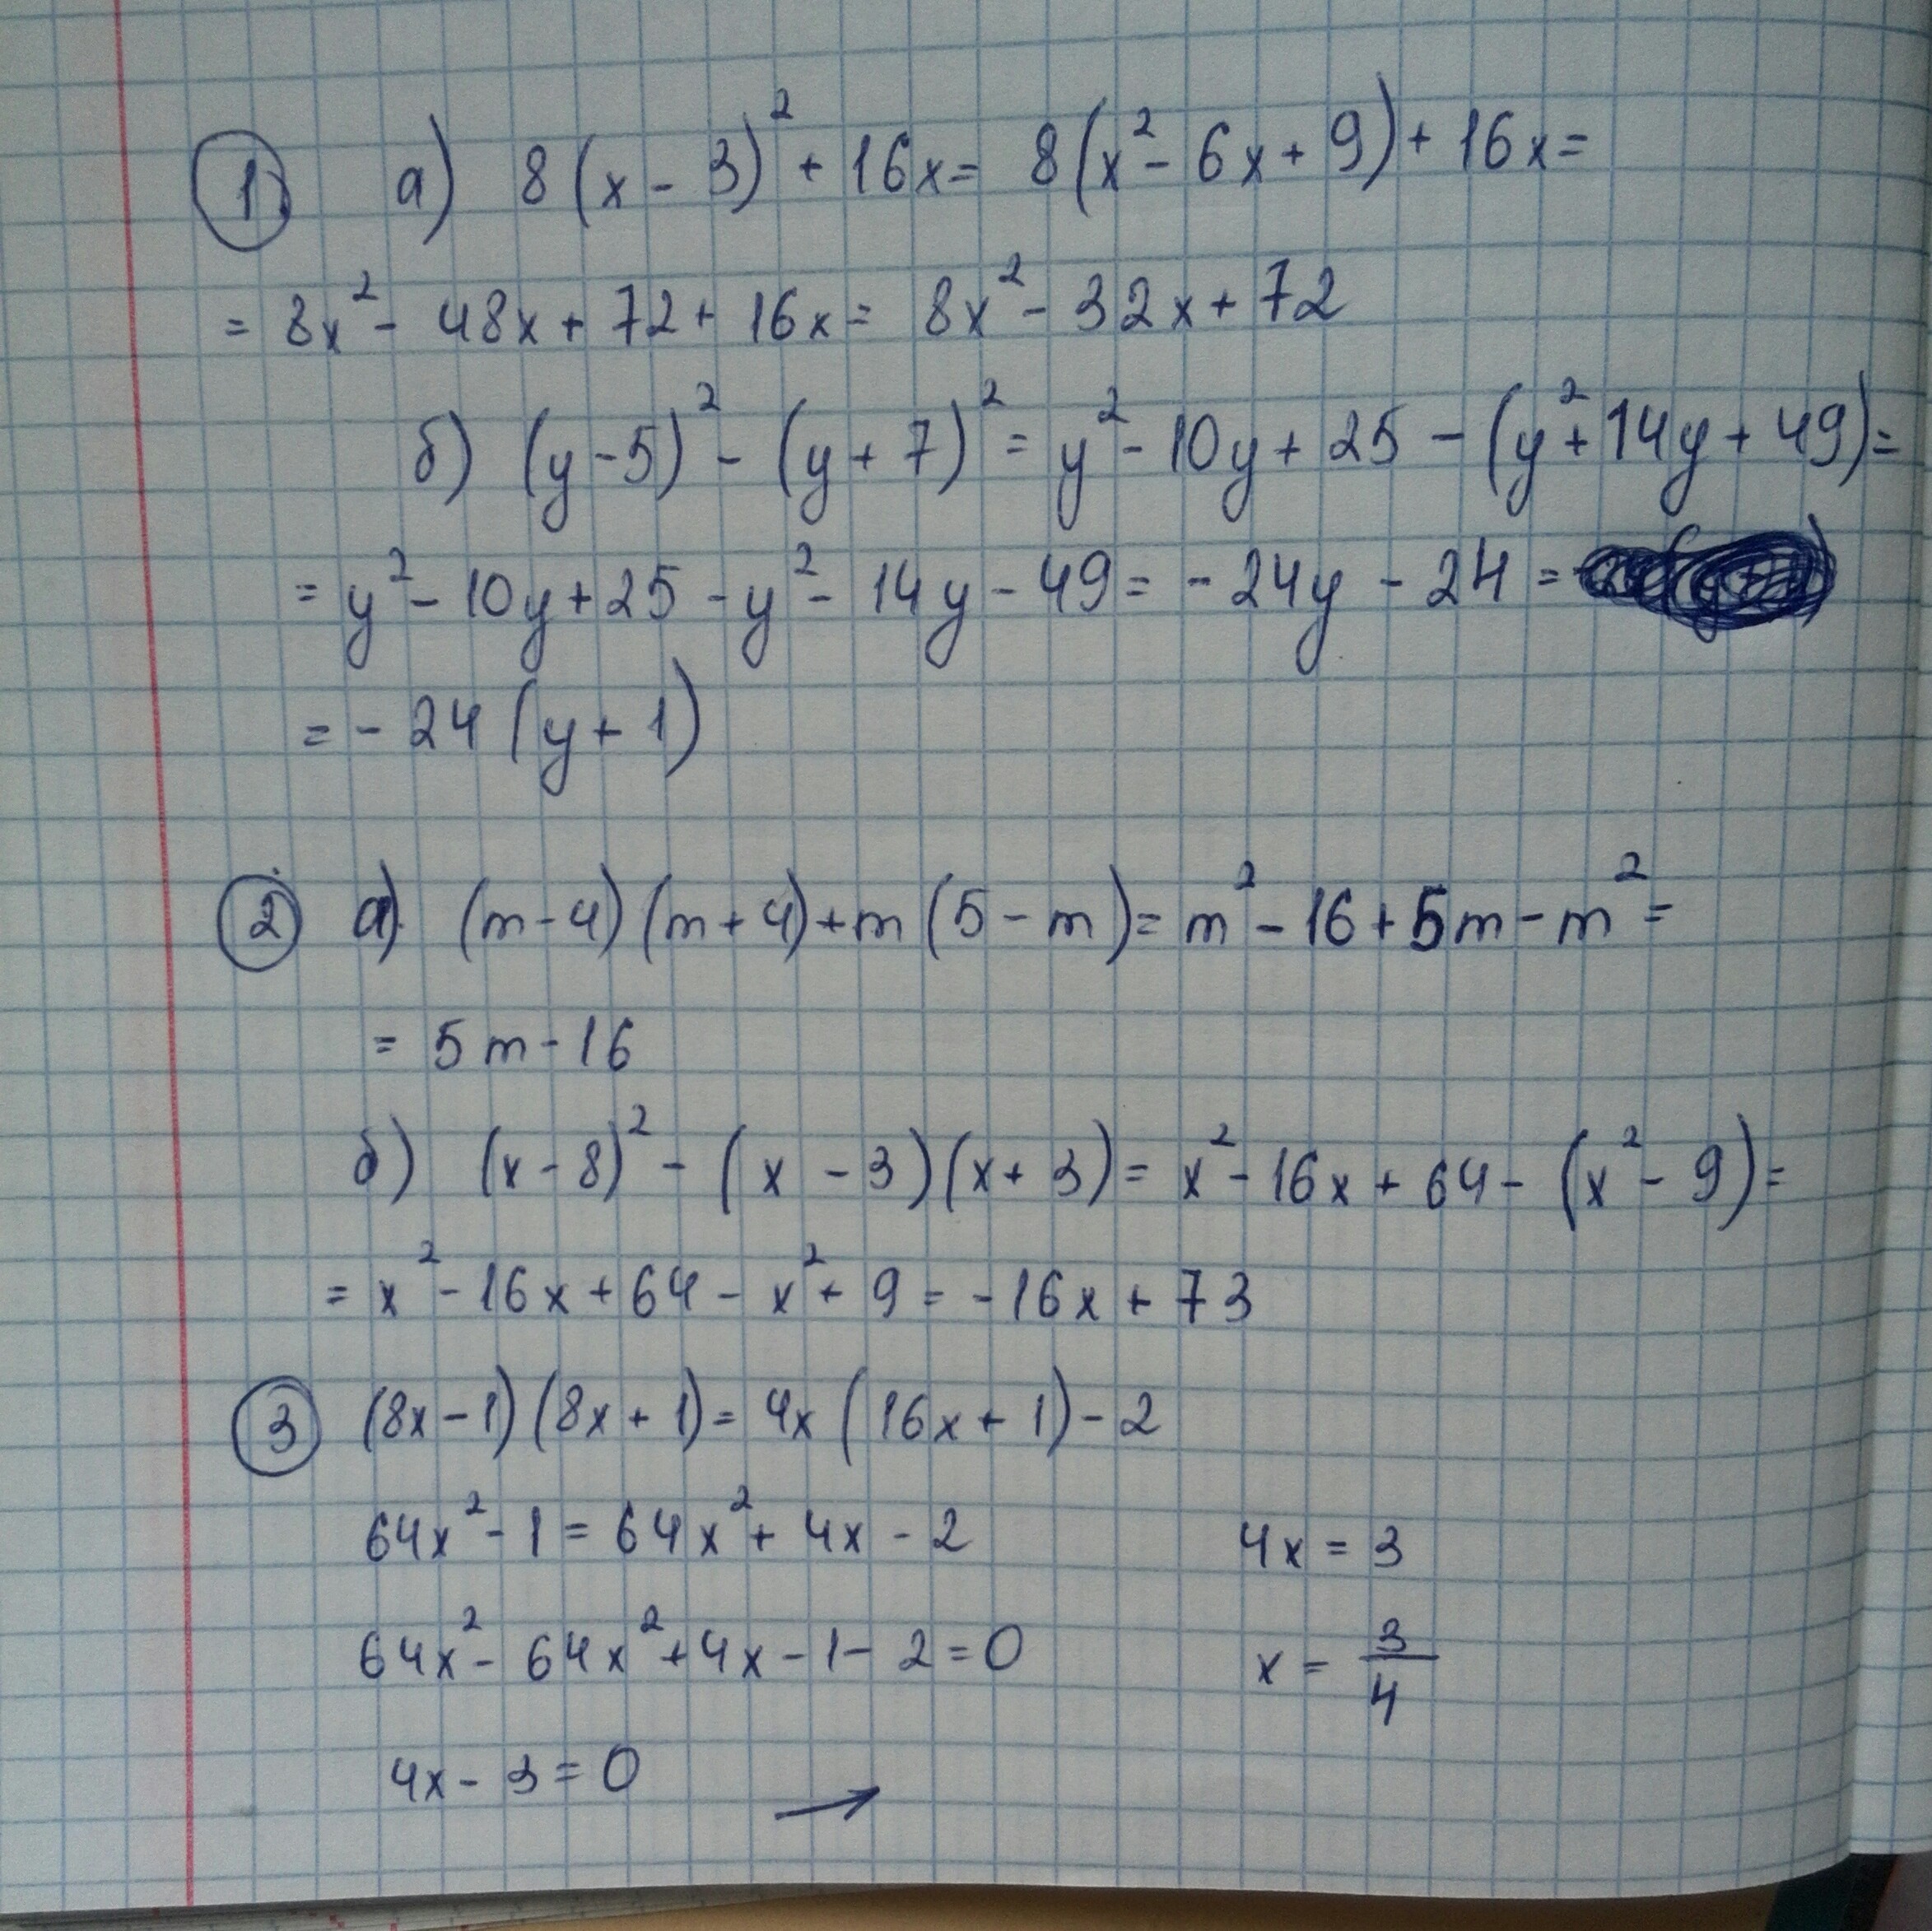 1) а) 8(x - 3)² + 16x = 8(x² - 6x + 9) + 16x =
= 8x² - 48x + 72 + 16x = 8x² - 32x + 72
б) (y - 5)² - (y + 7)² = y² - 10y + 25 - (y² + 14y + 49) =
= y² - 10y + 25 - y² - 14y - 49 = - 24y - 24 =
= - 24 (y + 1)
2) а) (m - 4)(m + 4) + m(5 - m) = m² - 16 + 5m - m² =
= 5m - 16
б) (x - 8)² - (x - 3)(x + 3) = x² - 16x + 64 - (x² - 9) =
= x² - 16x + 64 - x² + 9 = - 16x + 73
3 (8x - 1)(8x + 1) = 4x(16x + 1) - 2
64x² - 1 = 64x² + 4x - 2
64x² - 64x² + 4x - 1 - 2 = 0
4x - 3 = 0 →
4x = 3
x = 3/4